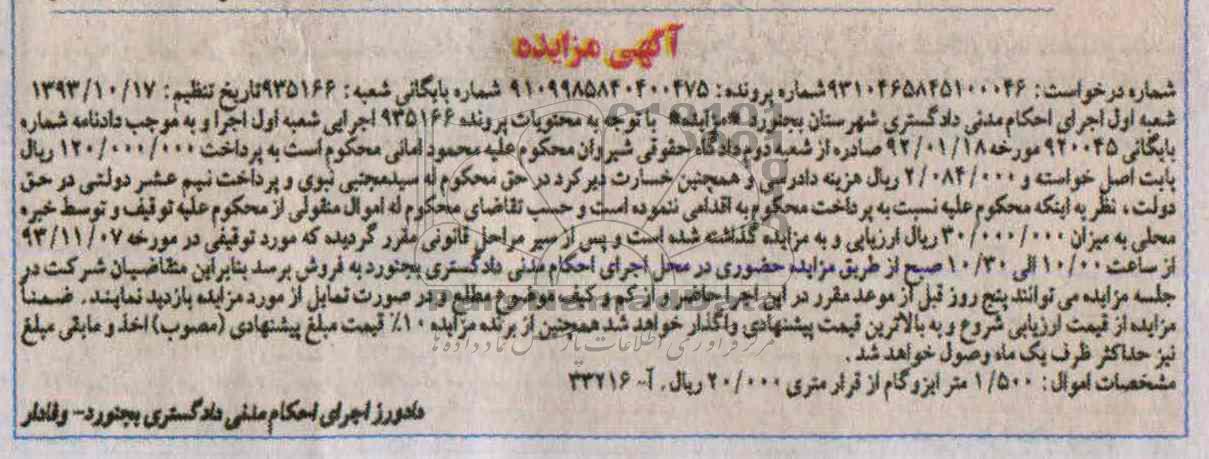 آگهی مزایده
شماره درخواست: ۹۳۱۰۴۶۵۸۴۵۱۰۰۰۴۶ شماره پرونده: ۹۱۰۹۹۸۵۸۴۰۴۰۰۴۷۵ شماره بایگانی شعبه: ۹۳۵۱۶۶ تاریخ تنظیم: ۱۳۹۳/۱۰/۱۷
شعبه اول اجرای احکام مدنی دادگستری شهرستان بجنورد *مزایده* با توجه به محتویات پرونده ۹۳۵۱۶۶ اجرایی شعبه اول اجرا و به موجب دادنامه شماره
بایگانی ۹۲۰۰۴۵ مورخه ۹۲/۰۱/۱۸ صادره از شعبه دوم دادگاه حقوقی شیروان محکوم علیه محمود امانی محکوم است به پرداخت ۱۲۰/۰۰۰/۰۰۰ ریال
بابت اصل خواسته و ۲/۰۸۴/۰۰۰ ریال هزینه دادرسی و همچنین خسارت دیرکرد در حق محکوم له سیدمجتبی نبوی و پرداخت نیم عشر دولتی در حق
دولت، نظر به اینکه محکوم علیه نسبت به پرداخت محکوم به اقدامی ننموده است و حسب تقاضای محکوم له اموال منقولی از محکوم علیه توقیف و توسط خبره
محلی به میزان ۳۰/۰۰۰/۰۰۰ ریال ارزیابی و به مزایده گذاشته شده است و پس از سیر مراحل قانونی مقرر گردیده که مورد توقیفی در مورخه ۹۳/۱۱/۰۷
از ساعت ۱۰/۰۰ الی ۱۰/۳۰ صبح از طریق مزایده حضوری در محل اجرای احکام مدنی دادگستری بجنورد به فروش برسد بنابراین متقاضیان شرکت در
جلسه مزایده می توانند پنج روز قبل از موعد مقرر در این اجرا حاضر و از کم و کیف موضوع مطلع و در صورت تمایل از مورد مزایده بازدید نمایند. ضمناً
مزایده از قیمت ارزیابی شروع و به بالاترین قیمت پیشنهادی واگذار خواهد شد همچنین از برنده مزایده ۱۰٪ قیمت مبلغ پیشنهادی (مصوب) اخذ و مابقی مبلغ
نیز حداکثر ظرف یک ماه وصول خواهد شد.
مشخصات اموال: ۱/۵۰۰ متر ایزوگام از قرار متری ۲۰/۰۰۰ ریال. آ- ۳۳۲۱۶
دادورز اجرای احکام مدنی دادگستری بجنورد- وفادار